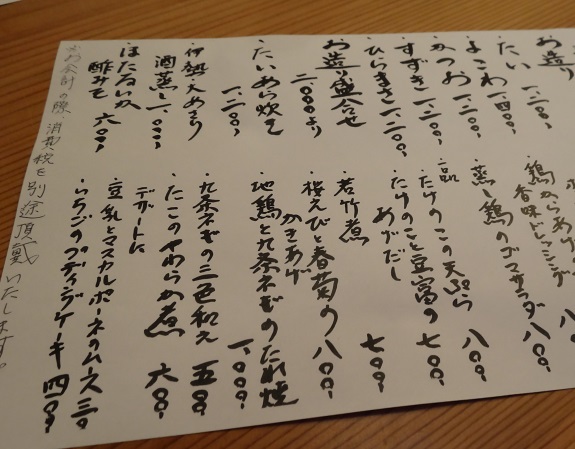 お造り
一、二〇〇
たい 一、四〇〇
よこわ 一、二〇〇
かつお 一、二〇〇
すずき 一、二〇〇
ひらまさ 一、二〇〇
お造り盛合せ
二、〇〇〇より
たいあら炊き
一、二〇〇
伊勢大あさり
酒蒸し 一、〇〇〇
ほたるいか
酢みそ 六〇〇
鶏からあげ
香味ドレッシング 八〇〇
蒸し鶏のゴマサラダ 八〇〇
一品
たけのこの天ぷら 八〇〇
たけのこと豆富の
あげだし 七〇〇
若竹煮 七〇〇
桜えびと春菊の
かきあげ 八〇〇
地鶏と九条ネギのたれ焼
一、〇〇〇
九条ネギの三色和え 五〇〇
たこのやわらか煮 六〇〇
デザートに
豆乳とマスカルポーネのムース 三〇〇
いちごのプディングケーキ 四〇〇
お会計の際、消費税を別途頂戴いたします。